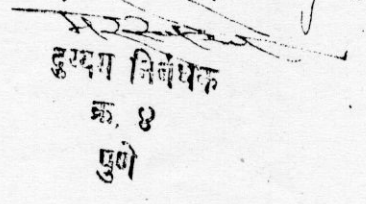 दुय्यम निबंधक
क्र. ४
पुणे